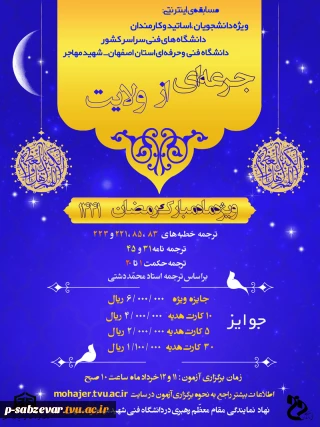 مسابقه‌ی اینترنتی:
ویژه دانشجویان، اساتید و کارمندان
دانشگاه های فنی سراسر کشور
دانشگاه فنی و حرفه ای استان اصفهان - شهید مهاجر
جرعه ای از ولایت
ویژه ماه مبارک رمضان ۱۴۴۱
ترجمه خطبه های ۸۳ ،۸۵ ،۲۲۱ و ۲۲۳
ترجمه نامه ۳۱ و ۴۵
ترجمه حکمت ۱ تا ۲۰
براساس ترجمه استاد محمد دشتی
جوایز
جایزه ویژه ۶/۰۰۰/۰۰۰ ریال
۱۰ کارت هدیه ۴/۰۰۰/۰۰۰ ریال
۵ کارت هدیه ۲/۰۰۰/۰۰۰ ریال
۳۰ کارت هدیه ۱/۱۰۰/۰۰۰ ریال
زمان برگزاری آزمون : ۱۱ و ۱۲ خرداد ماه ساعت ۱۰ صبح
اطلاعات بیشتر راجع به نحوه برگزاری آزمون در سایت mohajer.tvu.ac.ir
نهاد نمایندگی مقام معظم رهبری در دانشگاه فنی شهید
p-sabzevar.tvu.ac.ir